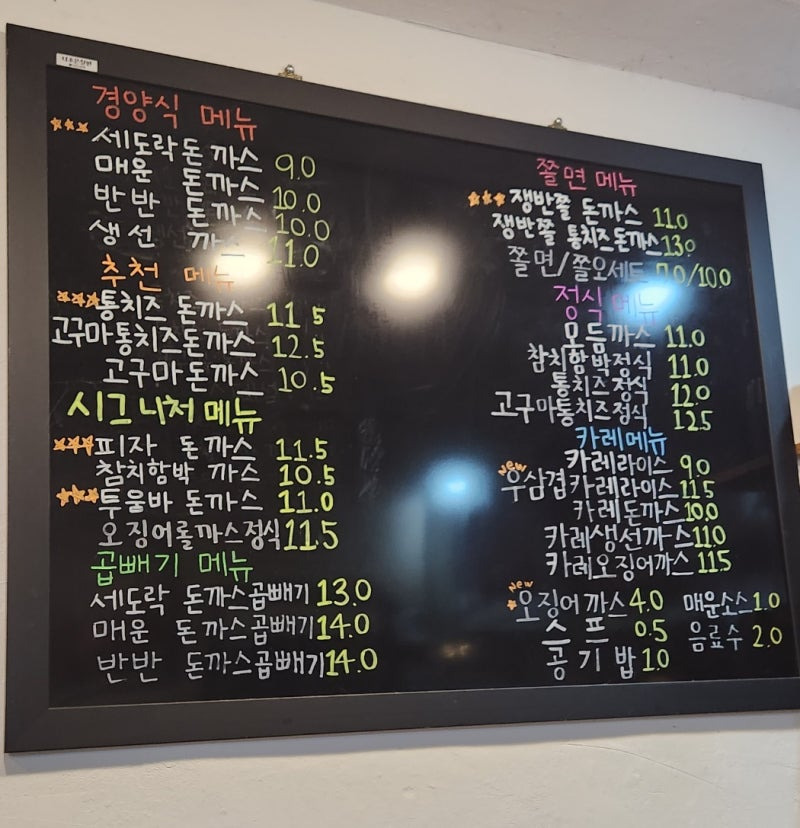 경양식 메뉴
세도락돈까스 9.0
매운 돈까스 10.0
반반 돈까스 10.0
생선 까스 11.0
추천 메뉴
통치즈 돈까스 11.5
고구마통치즈돈까스 12.5
고구마돈까스 10.5
시그니처 메뉴
피자 돈까스 11.5
참치함박 까스 10.5
투움바 돈까스 11.0
오징어롤까스정식 11.5
곱빼기 메뉴
세도락 돈까스곱빼기 13.0
매운 돈까스곱빼기 14.0
반반 돈까스곱빼기 14.0
쫄면 메뉴
쟁반쫄 돈까스 11.0
쟁반쫄 통치즈돈까스 13.0
쫄면/쫄오세트 7.0/10.0
정식 메뉴
모듬까스 11.0
참치함박정식 11.0
통치즈정식 12.0
고구마통치즈정식 12.5
카레메뉴
카레라이스 9.0
new
우삼겹카레라이스 11.5
카레돈까스 10.0
카레생선까스 11.0
카레오징어까스 11.5
new
오징어까스 4.0 매운소스 1.0
스프 0.5 음료수 2.0
공기밥 1.0